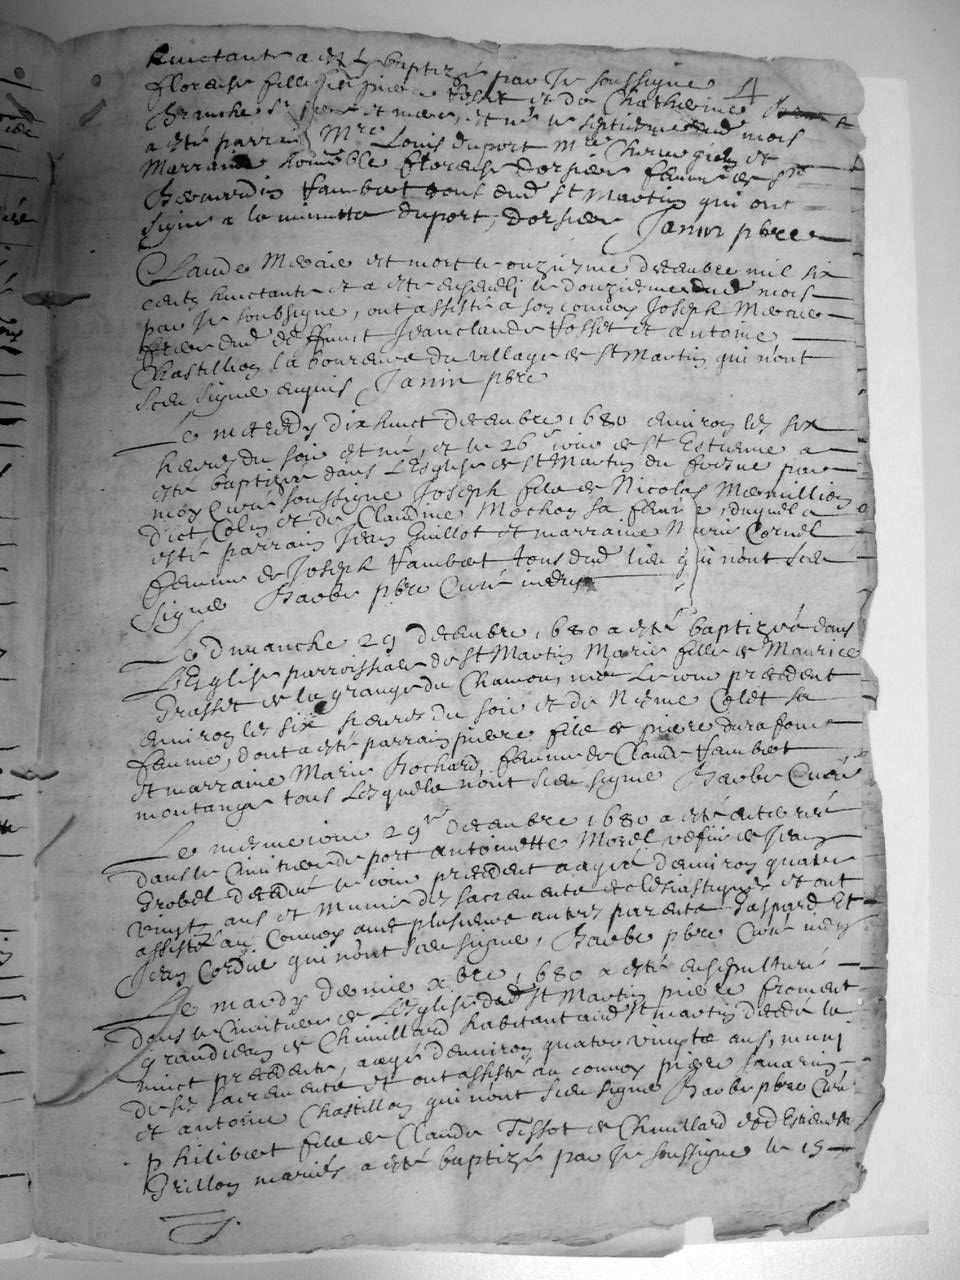 huictante a esté baptizé par Je soussigne
florense fille de pierre tosset et de Chatherine
4
et né le septieme dud mois
a esté parrain Mre Louis duport Mre Chirurgien et
Marraine honnoble florense dorsier femme de Sr
Bernardin Hambert tous dud St Martin qui ont
signe a la minutte duport, dorsier Janin pbre
Claude Mercie est mort le onzieme decembre mil six
cents huictante et a este ensepveli le douzieme dud mois
par Je soubsigne, ont assisté a son convoy Joseph Mercie
dud deffunct Jean claude tosset et antoine
Chastillon laboureurs du village de St Martin qui n'ont
sceu signe enquis Janin pbre
Le mecredy dix huict decembre 1680 environ les six
heures du soir est né, et le 26 jour de St Estienne a
esté baptizé dans L'Eglise de St Martin du fresne par
moy Curé soussigne Joseph fils de Nicolas Mermillion
dict Colin et de Claudine Mochon sa femme, duquel a
esté parrain Jean Guillot et marraine Marie Cornel
femme de Joseph Hambert tous dud lieu qui n'ont sceu
signe Barbe pbre Curé indigne
Le dimanche 29 decembre 1680 a esté baptizée dans
L'Eglise parroissiale de St Martin Marie fille de Maurice
Grasset de la grange du Chamou, née le jour precedent
environ les six heures du soir et de Nieme Colet sa
femme, dont a esté parrain pierre fils de pierre durafour
et marraine Marie Bochard, femme de Claude Hambert
montange tous lesquels n'ont sceu signe Barbe Curé
Le mesme jour 29e decembre 1680 a esté enterrée
dans le Cimitiere de port antoinette Morel vefve de Jean
Grobel decedée le jour precedent aagée d'environ quatre
vingt ans et munie des sacrements ecclesiastiques et ont
assisté au Convoy avec plusieurs autres parents Gaspard et
Jean Cordie qui n'ont sceu signe, Barbe pbre Curé indigne
Le mardy dernier xbre 1680 a esté ensepulturé
dans le Cimitiere de L'Eglise dud St Martin pierre froment
grandjean de Chivillard habitant aud St martin decedé la
nuict precedente, aagé d'environ quatre vingts ans, muni
de ses sacrements et ont assisté au convoy pierre savarin
et antoine Chastillon qui n'ont sceu signe Barbe pbre Curé
philibert fils de Claude Tissot de Chivillard et d'Estiennette
Grillon mariés a esté baptizé par Je soussigne le 15